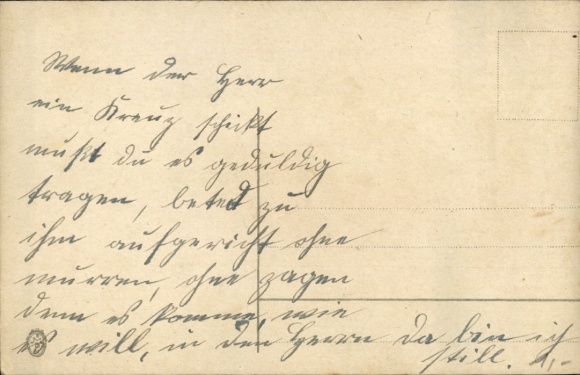 Wenn der Herr
ein Kreuz schickt
mußt du es geduldig
tragen, betet zu
ihm aufgericht ohne
murren, ohne zagen
denn es komme, wie
es will, in den Herrn da bin ich
still.